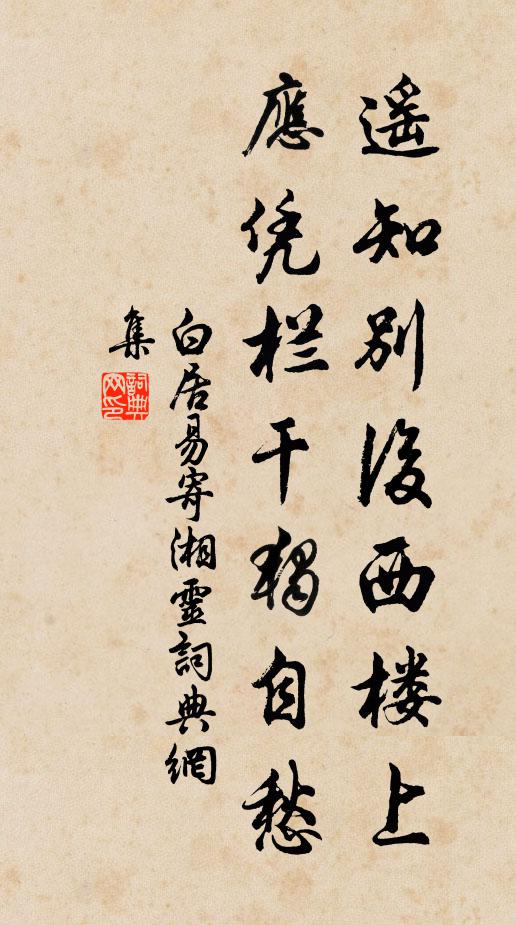 遥知别後西楼上
應凭栏干獨自愁
白居易寄湘靈詞典網
集
詞典网印